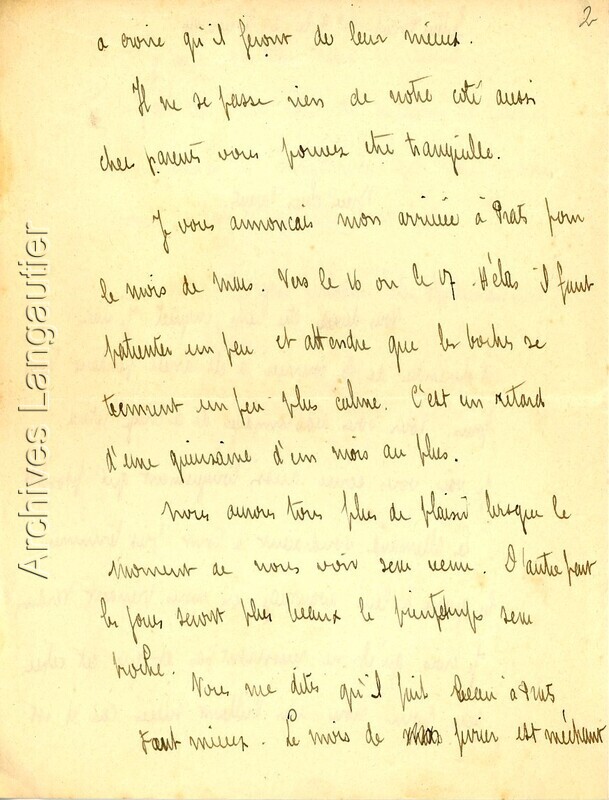 2
a croire qu'il feront de leur mieux.
Il ne se passe rien de notre coté aussi
cher parents vous pouvez etre tranquille.
Je vous annoncais mon arrivée à Prats pour
le mois de mars. Vers le 16 ou le 17. Hélas il faut
patienter un peu et attendre que les boches se
tiennent un peu plus calme. C'est un retard
d'une quinzaine d'un mois au plus.
Nous aurons tous plus de plaisir lorsque le
moment de nous voir sera venu. D'autre part
les jours seront plus beaux le printemps sera
proche.
Vous me dites qu'il fait beau à Prats
tant mieux. Le mois de fevrier est méchant
Archives Langautier